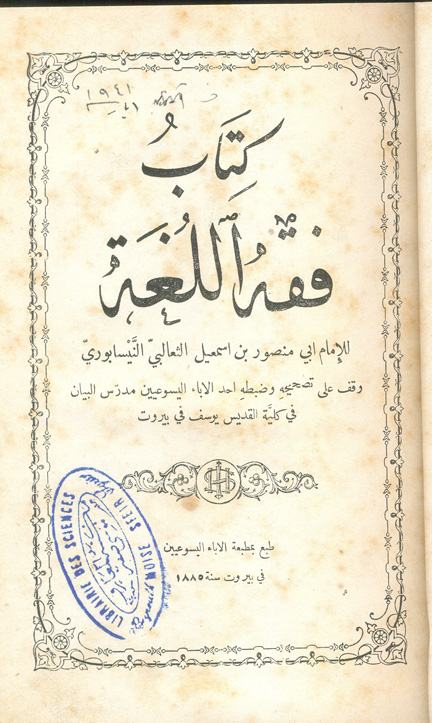 ١٩٤١
كِتَابُ
فِقْهُ ٱللُّغَةِ
للإمام ابي منصور بن اسمعيل الثعالبيّ النَّيْسابوريّ
وقف على تصحيحهِ وضبطهِ احد الاباء اليسوعيين مدرّس البيان
في كليَّة القديس يوسف في بيروت
IHS
طبع بمطبعة الاباء اليسوعيين
في بيروت سنة ١٨٨٥
LIBRAIRIE DES SCIENCES
MOISE STEIR